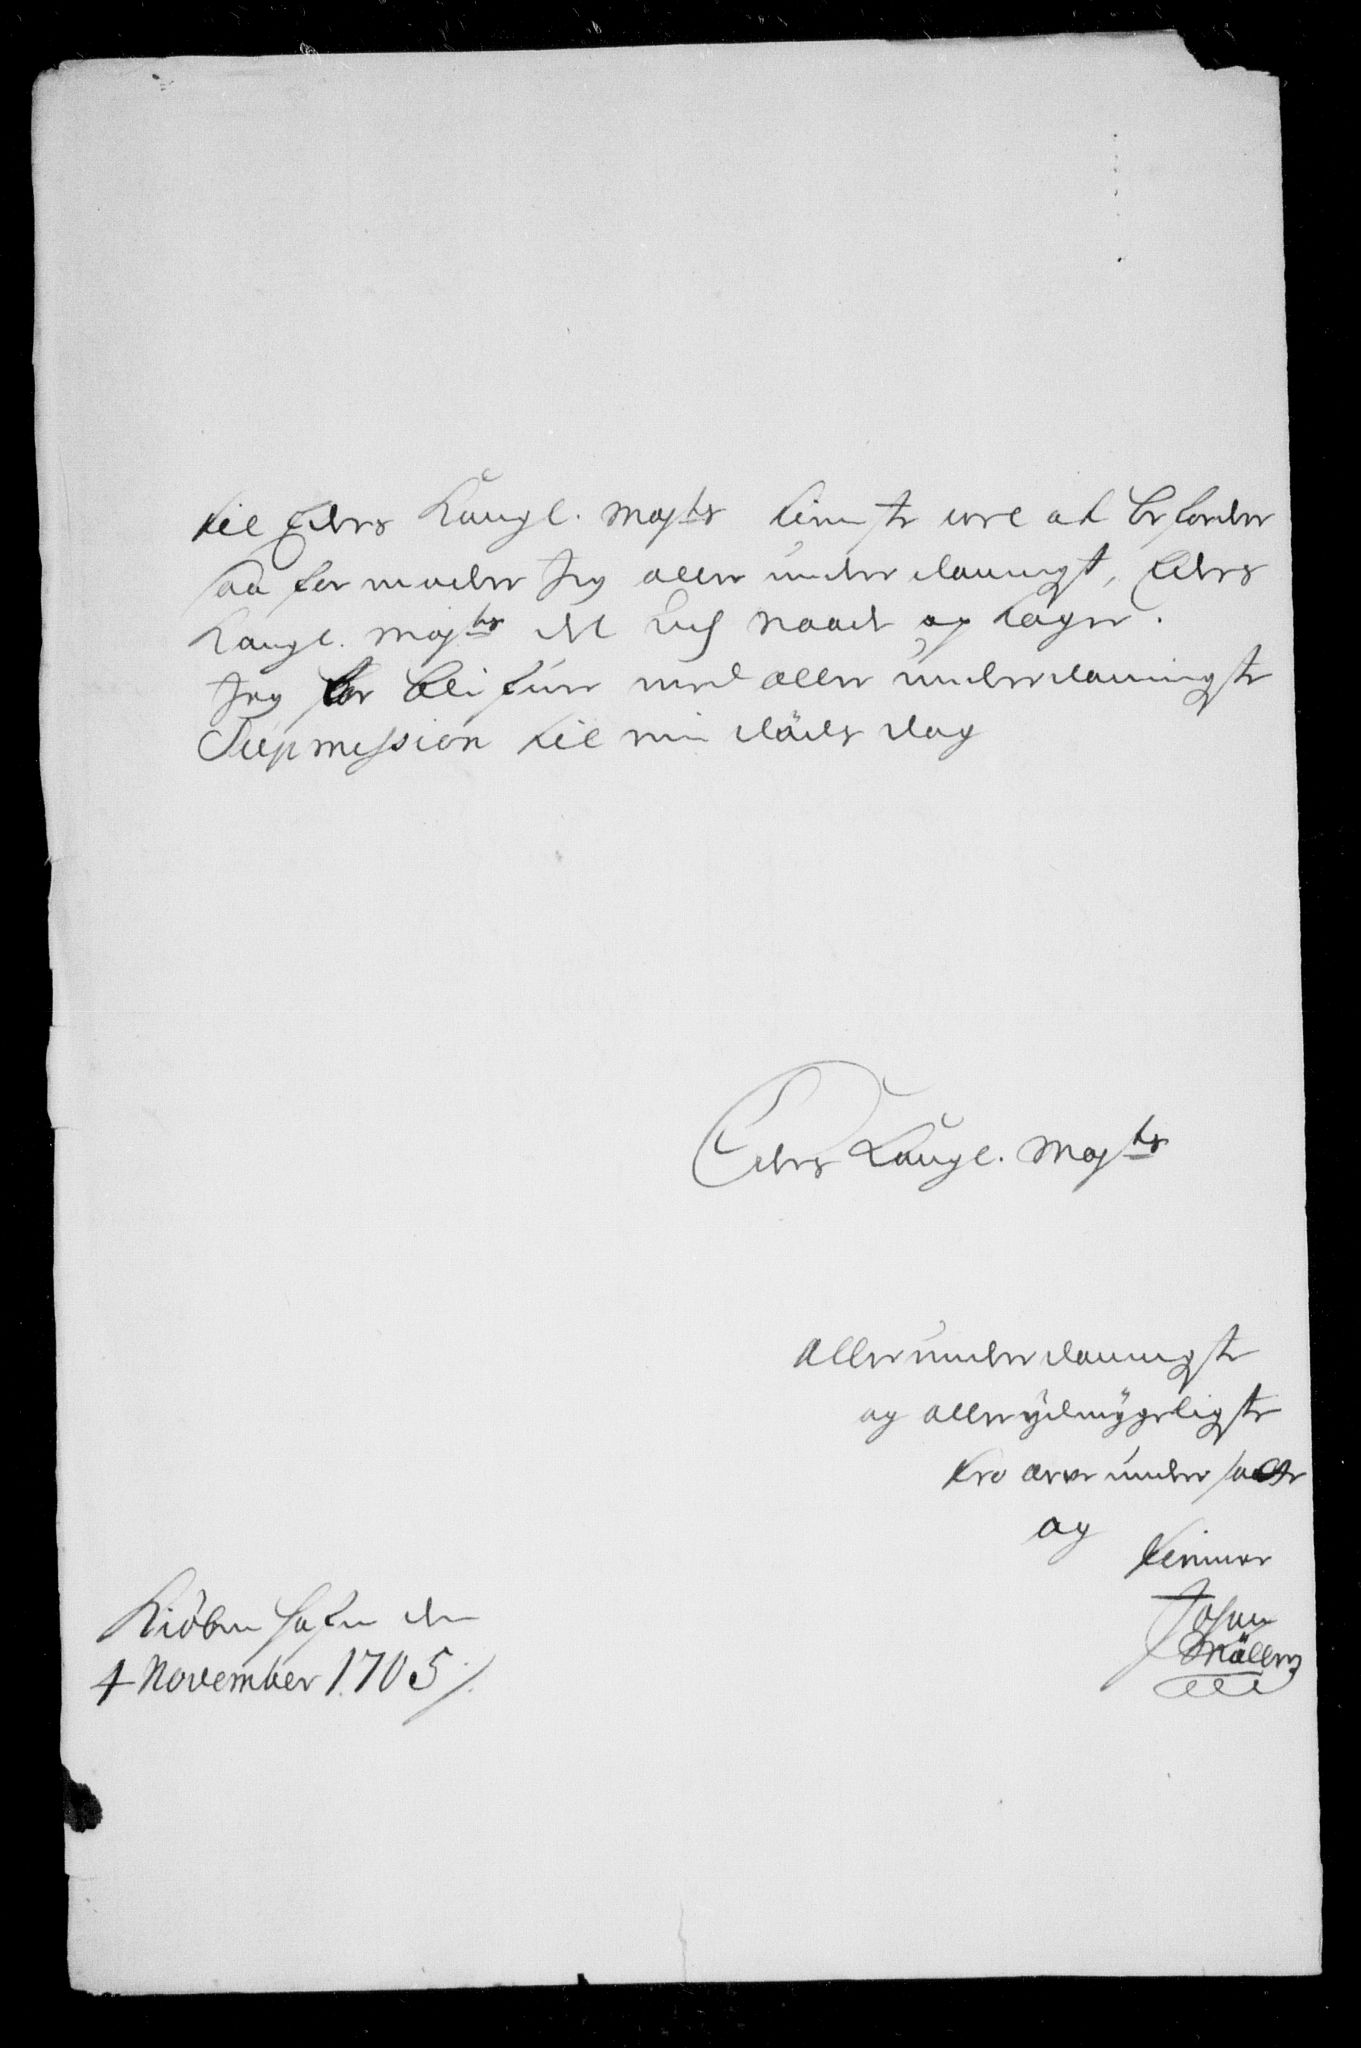 til Eders Kongl. Mayts tieniste vel at befordre
saa formoder Jeg aller underdanigst, Eders
Kongl. Mayts det udj naade optager.
Jeg for blifuer med aller underdanigste
Supmession til min döds dag
Eders Kongl. Mayts
Allerunderdanigste
og allerydmygeligste
tro arve undersaatte
og
tienner
Johan
Möller
Kiöbenhafn den
4 November 1705